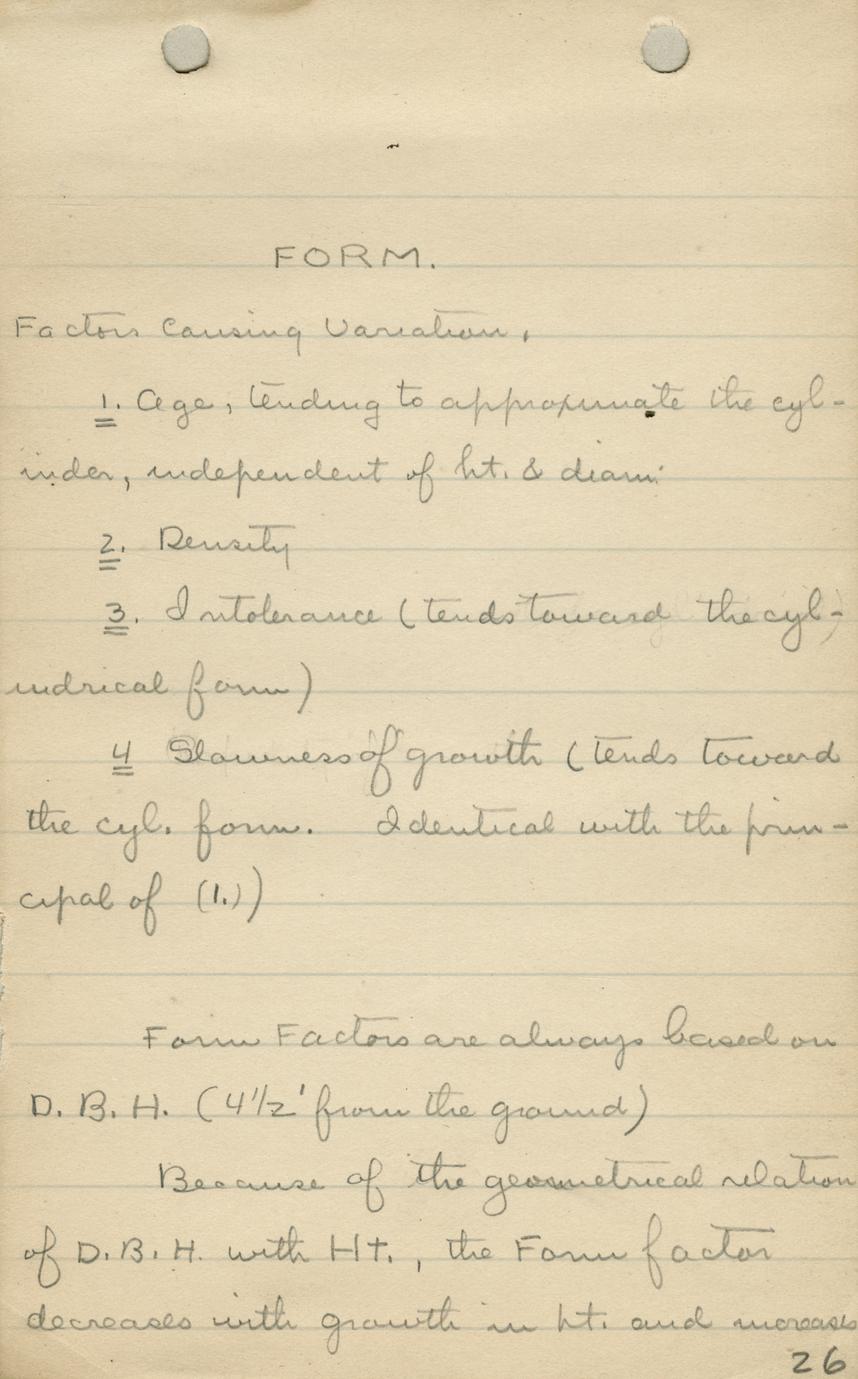 FORM.
Factors Causing Variation.
1. Age, tending to approximate the cyl-
inder, independent of ht. & diam.
2. Density
3. Intolerance (tends toward the cyl-
indrical form)
4 Slowness of growth (tends toward
the cyl. form. Identical with the prin-
cipal of (1.))
Form Factors are always based on
D. B. H. (4 1/2' from the ground)
Because of the geometrical relation
of D. B. H. with Ht., the Form factor
decreases with growth in ht. and increases
26